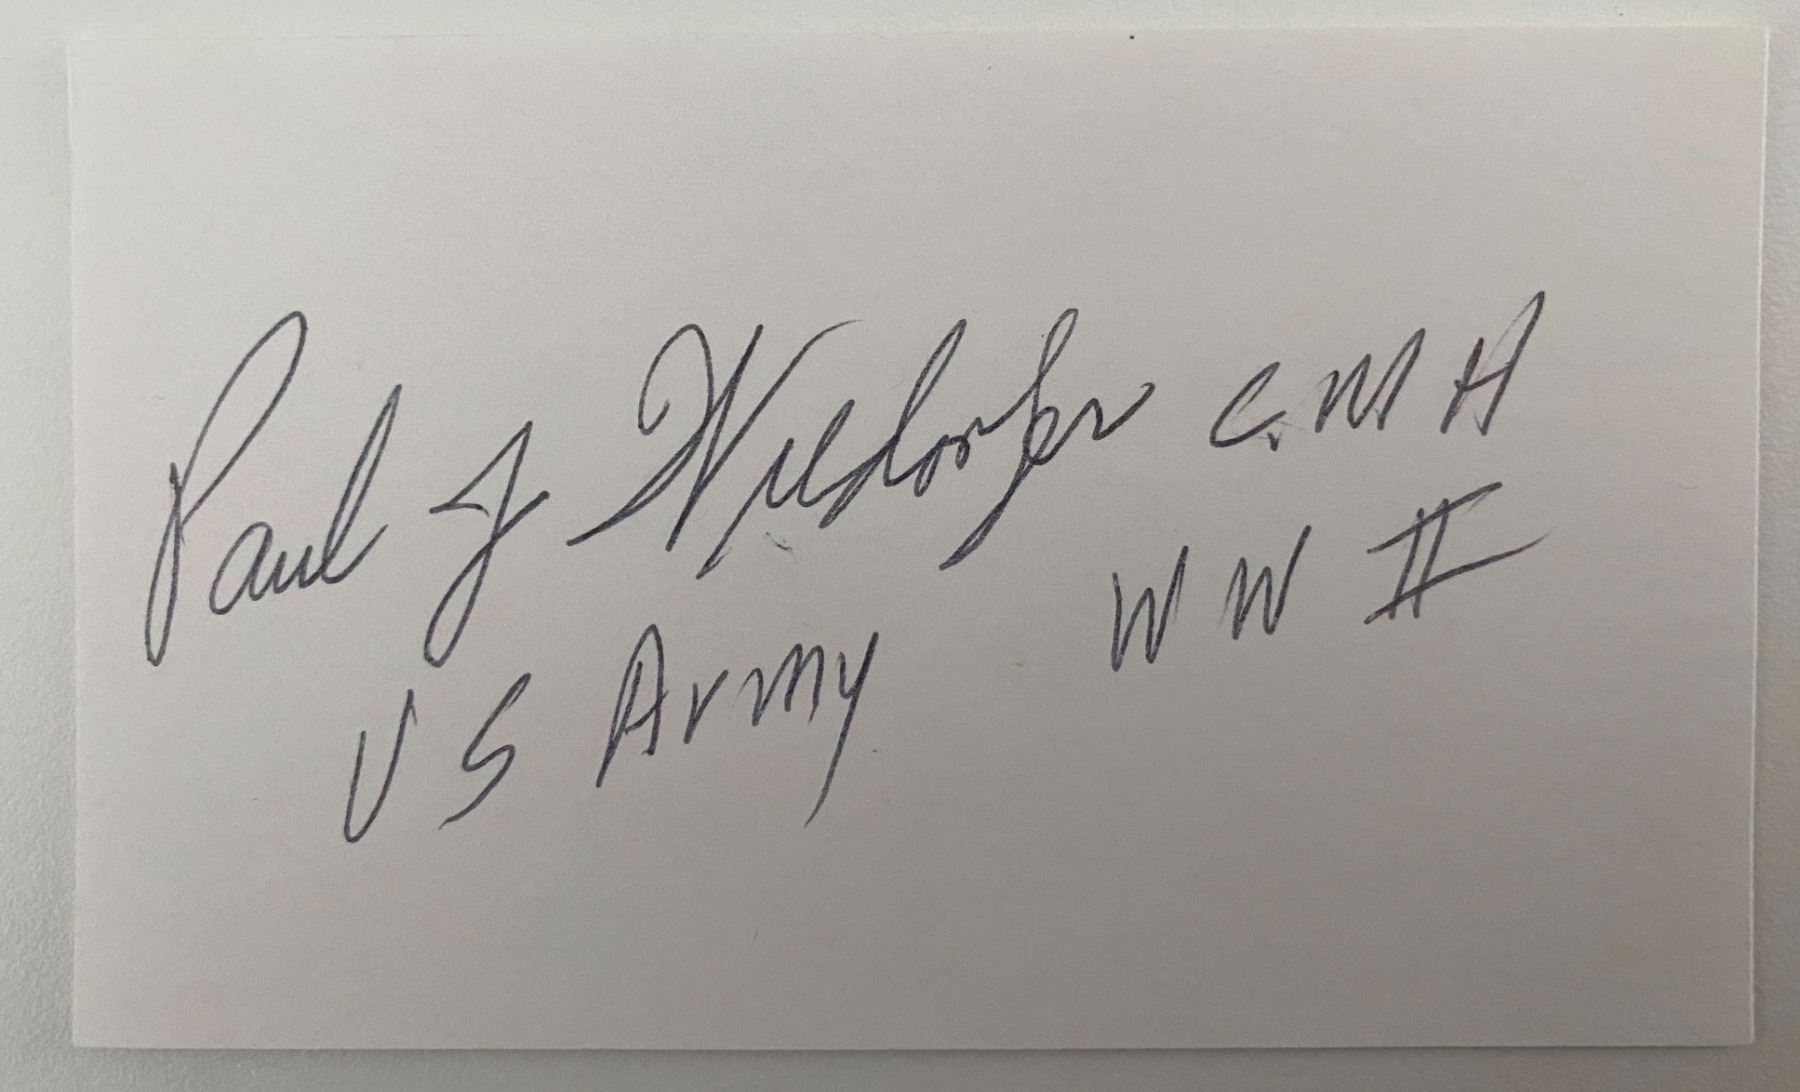 Paul J Wiedorfer C.M H
US Army WW II